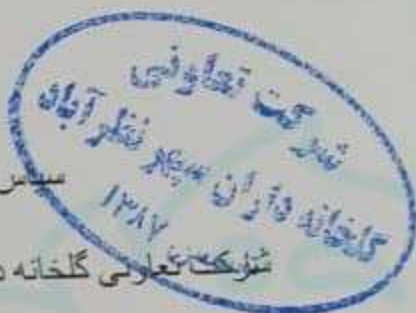 شرکت تعاونی
گلخانه داران سپهر نظرآباد
۱۳۸۷
سپاس
شرکت تعاونی گلخانه د